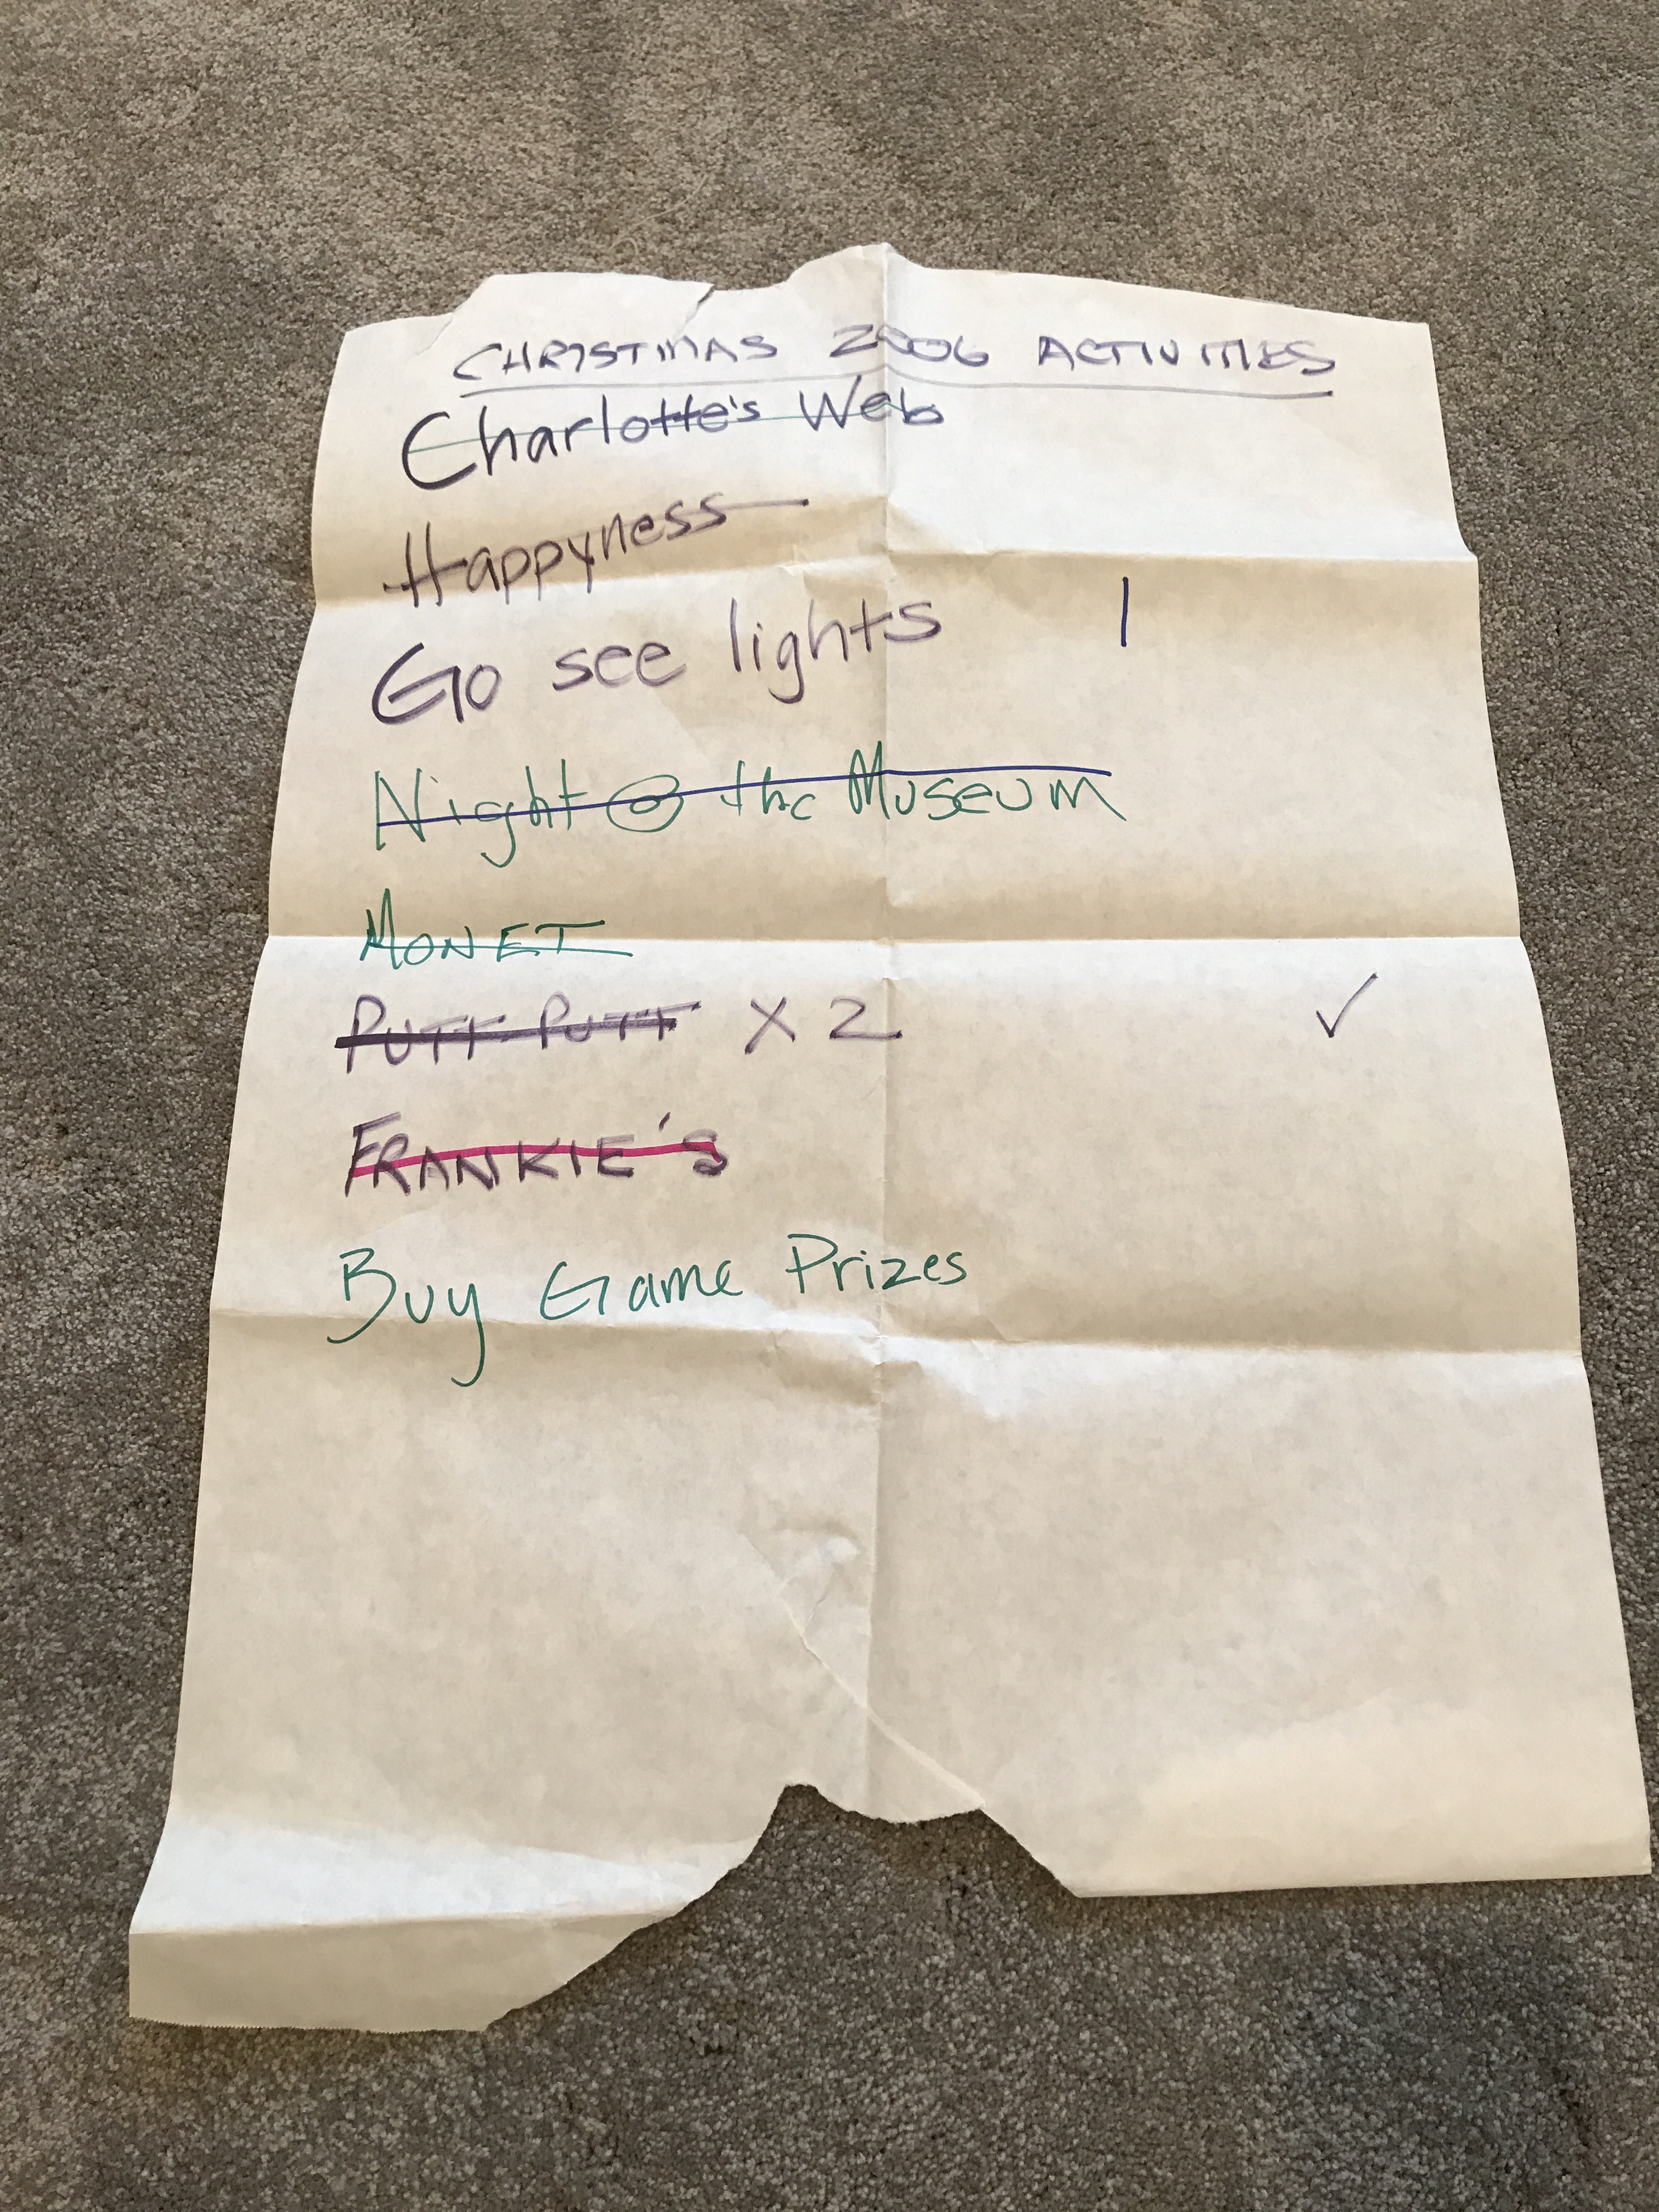 CHRISTMAS 2006 ACTIVITIES
Charlotte's Web
Happyness
Go see lights |
Night @ the Museum
MONET
PUTT-PUTT X 2 ✓
FRANKIE'S
Buy Game Prizes